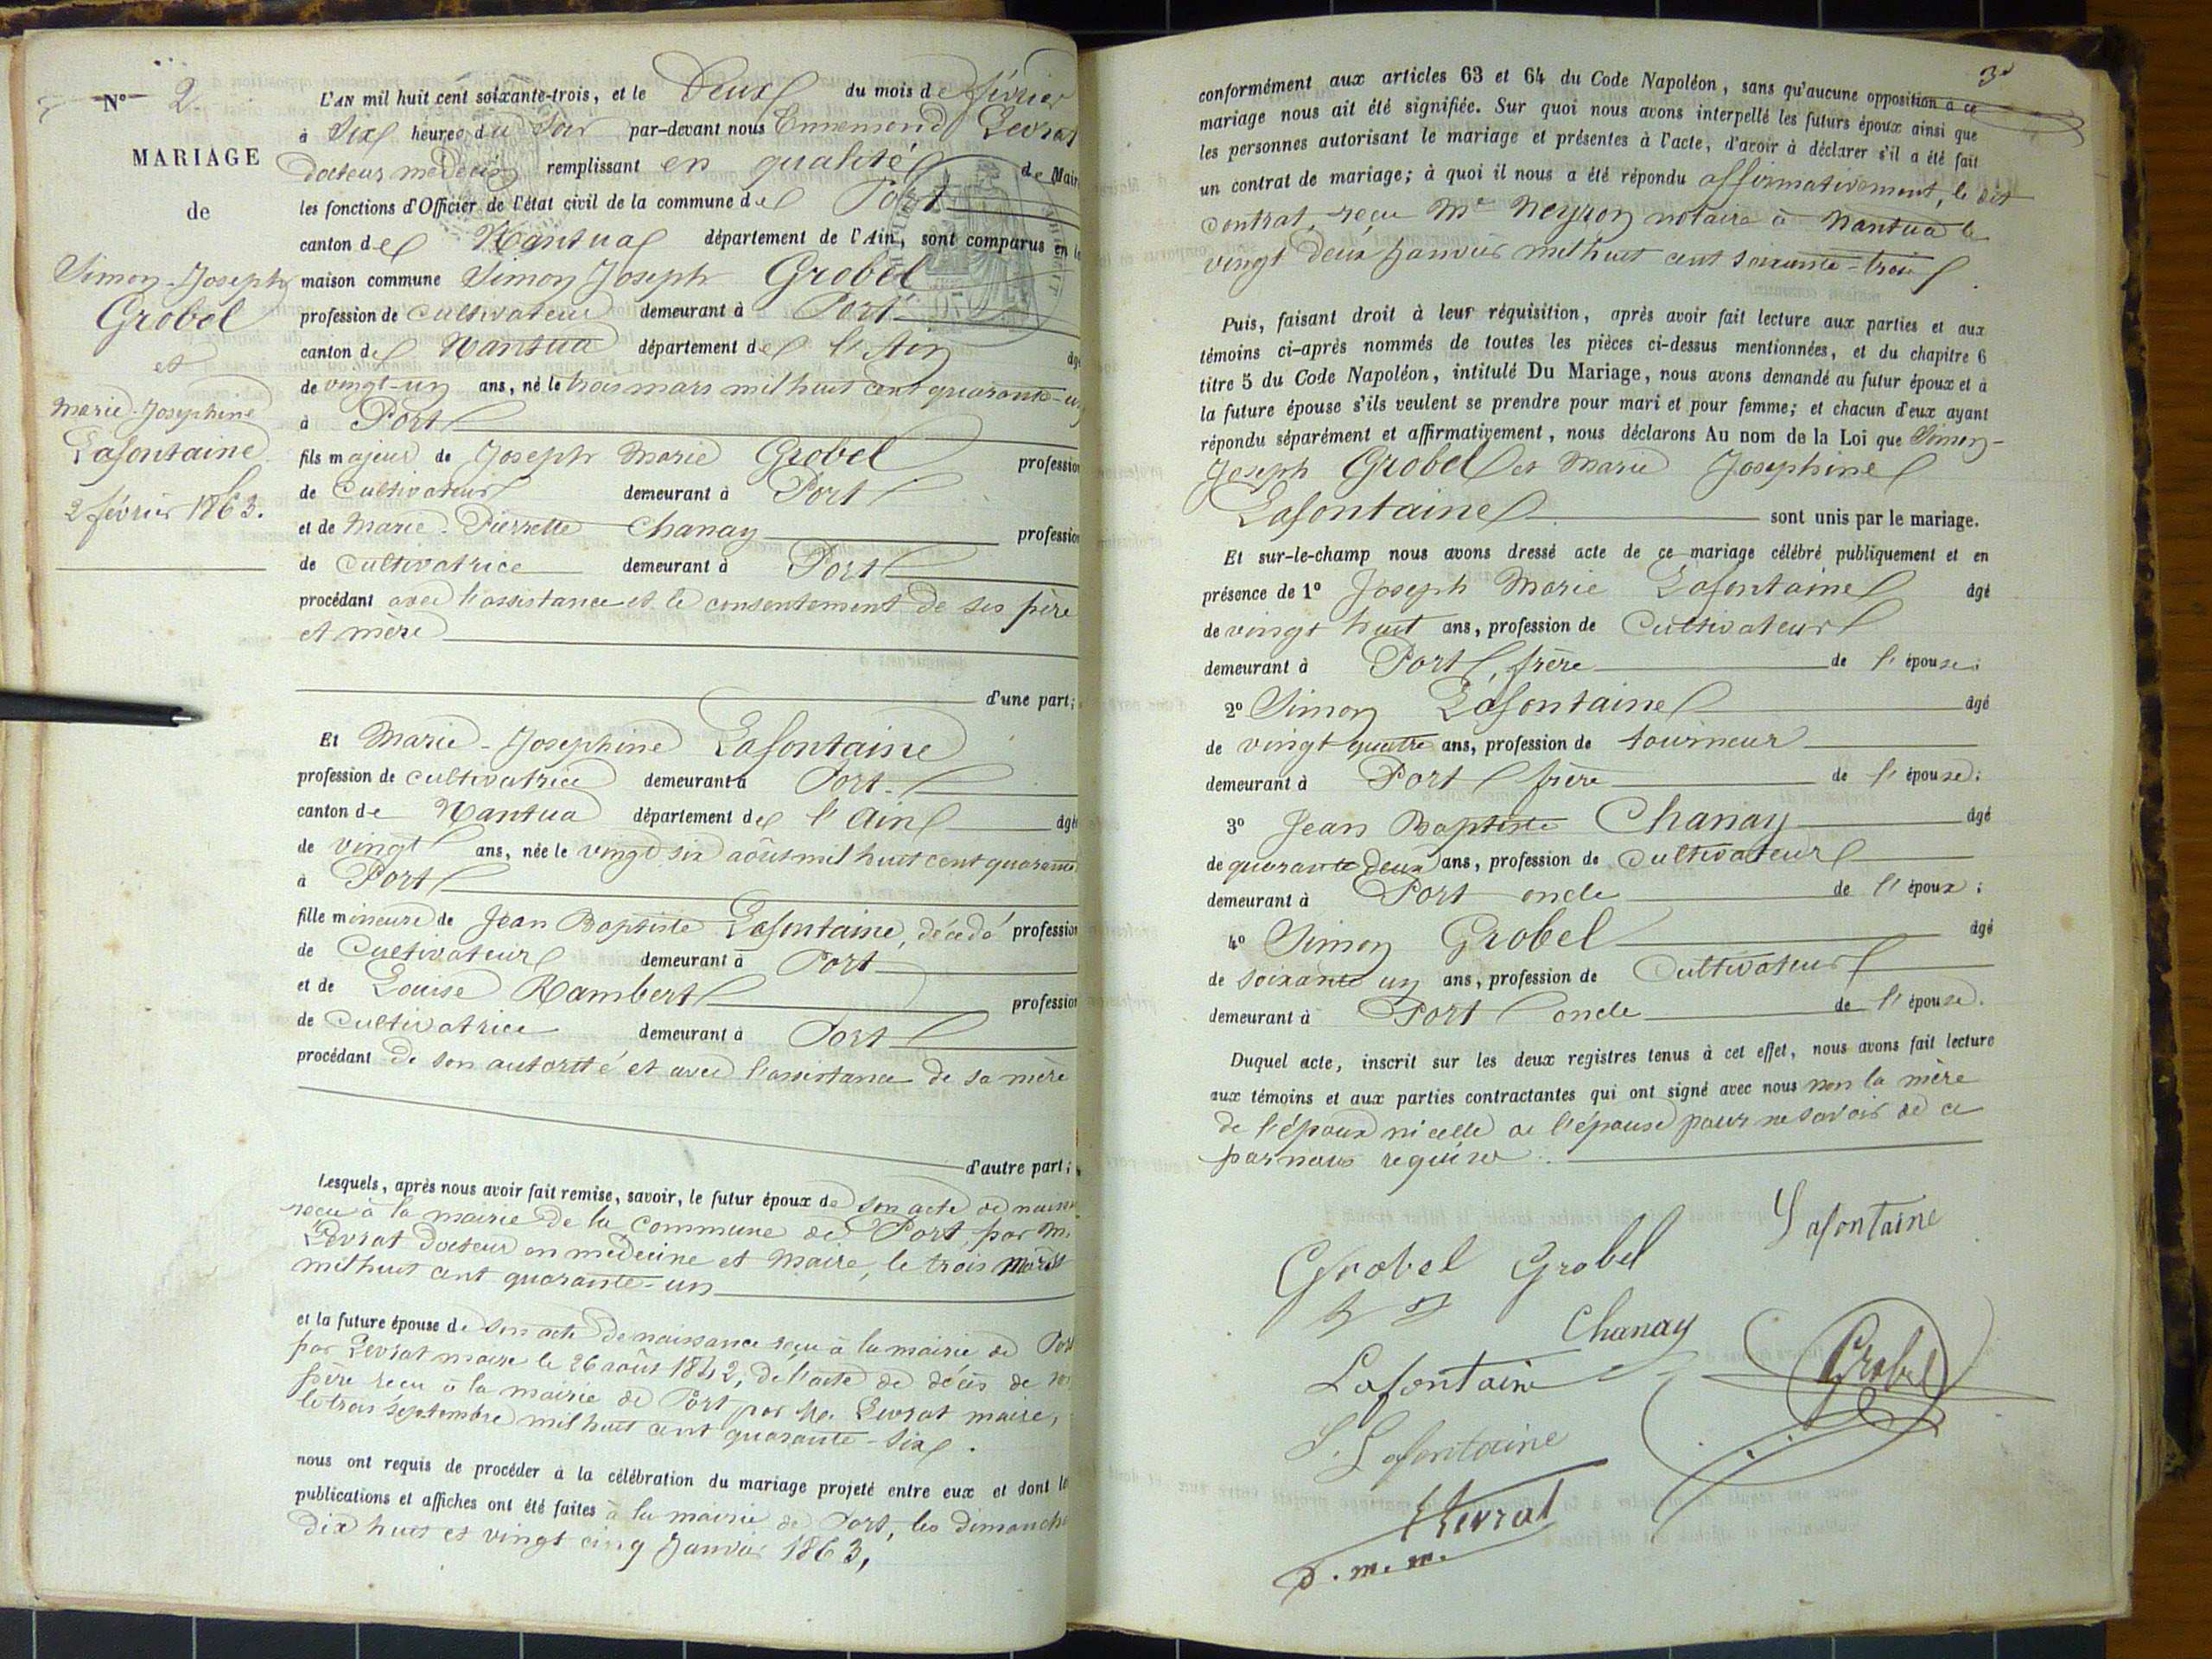 N° 2
MARIAGE
de
Simon-Joseph
Grobel
et
Marie-Josephine
Lafontaine
2 février 1863.
L'AN mil huit cent soixante-trois, et le Deux du mois de février
à Six heures du Soir par-devant nous Ennemond Levrat
docteur médecin remplissant en qualité de Maire
les fonctions d'Officier de l'état civil de la commune de Port
canton de Nantua département de l'Ain, sont comparus en la
maison commune Simon Joseph Grobel
profession de cultivateur demeurant à Port
canton de Nantua département de l'Ain âgé
de vingt-un ans, né le trois mars mil huit cent quarante-un
à Port
fils majeur de Joseph Marie Grobel profession
de Cultivateur demeurant à Port
et de Marie-Pierrette Chanay profession
de Cultivatrice demeurant à Port
procédant avec l'assistance et le consentement de ses père
et mère
d'une part;
Et Marie-Josephine Lafontaine
profession de cultivatrice demeurant à Port
canton de Nantua département de l'Ain âgée
de vingt ans, née le vingt six août mil huit cent quarante
à Port
fille mineure de Jean Baptiste Lafontaine, décédé profession
de Cultivateur demeurant à Port
et de Louise Rambert profession
de Cultivatrice demeurant à Port
procédant de son autorité et avec l'assistance de sa mère
d'autre part;
Lesquels, après nous avoir fait remise, savoir, le futur époux de son acte de naissance
reçu à la mairie de la commune de Port, par M.
Levrat docteur en médecine et maire, le trois mars
mil huit cent quarante-un
et la future épouse de son acte de naissance reçu à la mairie de Port
par Levrat maire le 26 août 1842, de l'acte de décès de son
père reçu à la mairie de Port par M. Levrat maire,
le trois septembre mil huit cent quarante-six.
nous ont requis de procéder à la célébration du mariage projeté entre eux et dont les
publications et affiches ont été faites à la mairie de Port, les dimanche
dix huit et vingt cinq Janvier 1863,
3
conformément aux articles 63 et 64 du Code Napoléon, sans qu'aucune opposition à ce
mariage nous ait été signifiée. Sur quoi nous avons interpellé les futurs époux ainsi que
les personnes autorisant le mariage et présentes à l'acte, d'avoir à déclarer s'il a été fait
un contrat de mariage; à quoi il nous a été répondu affirmativement, le dit
contrat, reçu Me Neyron notaire à Nantua le
vingt deux Janvier mil huit cent soixante-trois.
Puis, faisant droit à leur réquisition, après avoir fait lecture aux parties et aux
témoins ci-après nommés de toutes les pièces ci-dessus mentionnées, et du chapitre 6
titre 5 du Code Napoléon, intitulé Du Mariage, nous avons demandé au futur époux et à
la future épouse s'ils veulent se prendre pour mari et pour femme; et chacun d'eux ayant
répondu séparément et affirmativement, nous déclarons Au nom de la Loi que Simon-
Joseph Grobel et Marie Josephine
Lafontaine sont unis par le mariage.
Et sur-le-champ nous avons dressé acte de ce mariage célébré publiquement et en
présence de 1° Joseph Marie Lafontaine âgé
de vingt huit ans, profession de Cultivateur
demeurant à Port, frère de l'épouse;
2° Simon Lafontaine âgé
de vingt quatre ans, profession de tourneur
demeurant à Port frère de l'épouse;
3° Jean Baptiste Chanay âgé
de quarante deux ans, profession de Cultivateur
demeurant à Port oncle de l'époux;
4° Simon Grobel âgé
de soixante un ans, profession de Cultivateur
demeurant à Port oncle de l'épouse.
Duquel acte, inscrit sur les deux registres tenus à cet effet, nous avons fait lecture
aux témoins et aux parties contractantes qui ont signé avec nous non la mère
de l'époux ni celle de l'épouse pour ne savoir de ce
par nous requise.
Lafontaine
Grobel Grobel
Chanay
Grobel
Lafontaine
S. Lafontaine
Levrat
d. m. m.